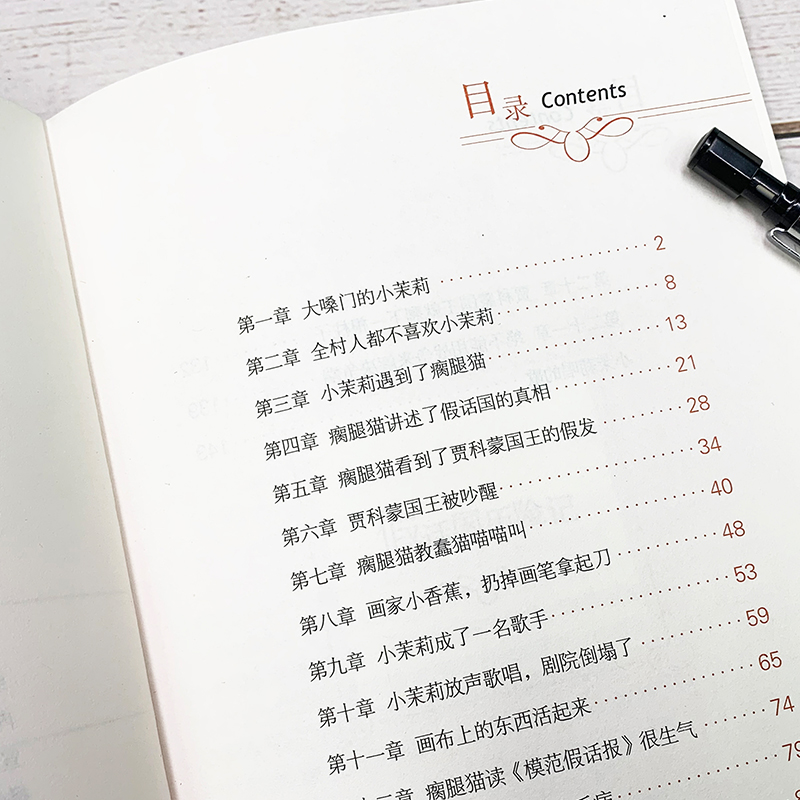 目录 Contents
第一章 大嗓门的小茉莉 2
第二章 全村人都不喜欢小茉莉 8
第三章 小茉莉遇到了瘸腿猫 13
第四章 瘸腿猫讲述了假话国的真相 21
第五章 瘸腿猫看到了贾科蒙国王的假发 28
第六章 贾科蒙国王被吵醒 34
第七章 瘸腿猫教蠢猫喵喵叫 40
第八章 画家小香蕉，扔掉画笔拿起刀 48
第九章 小茉莉成了一名歌手 53
第十章 小茉莉放声歌唱，剧院倒塌了 59
第十一章 画布上的东西活起来 65
二章 瘸腿猫读《模范假话报》很生气 74
79